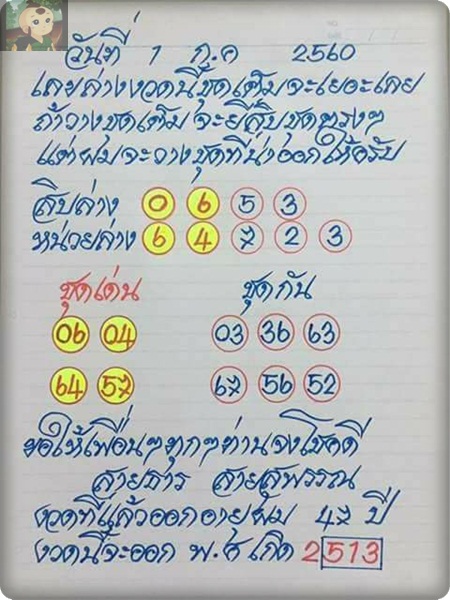 วันที่ 1 ก.ค 2560
เลขล่างงวดนี้ชุดเต็มจะเยอะเลย
ถ้าวางชุดเต็มจะยี่สิบชุดตรงๆ
แต่ผมจะวางชุดที่น่าออกให้ครับ
สิบล่าง 0 6 5 3
หน่วยล่าง 6 4 7 2 3
ชุดเด่น ชุดกัน
06 04 03 36 63
64 57 67 56 52
ขอให้เพื่อนๆทุกๆท่านจงโชคดี
สายธาร สายสุพรรณ
งวดที่แล้วออกอายุผม 47 ปี
งวดนี้จะออก พ.ศ เกิด 2513